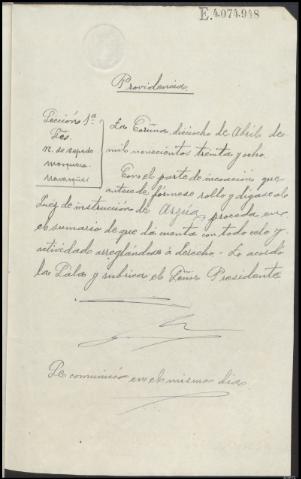 E.4.074.948
Providencia
Sección 1ª
Sres.
La Coruña, dieciocho de Abril de
mil novecientos treinta y ocho.
Con el parte de incoación que
antecede fórmese rollo y dígase al
Juez de instrucción de Arzúa, proceda en
el sumario de que da cuenta con todo celo y
actividad arreglándose a derecho.- Lo acordó
la Sala y rubrica el Señor Presidente
Se comunicó en el mismo día